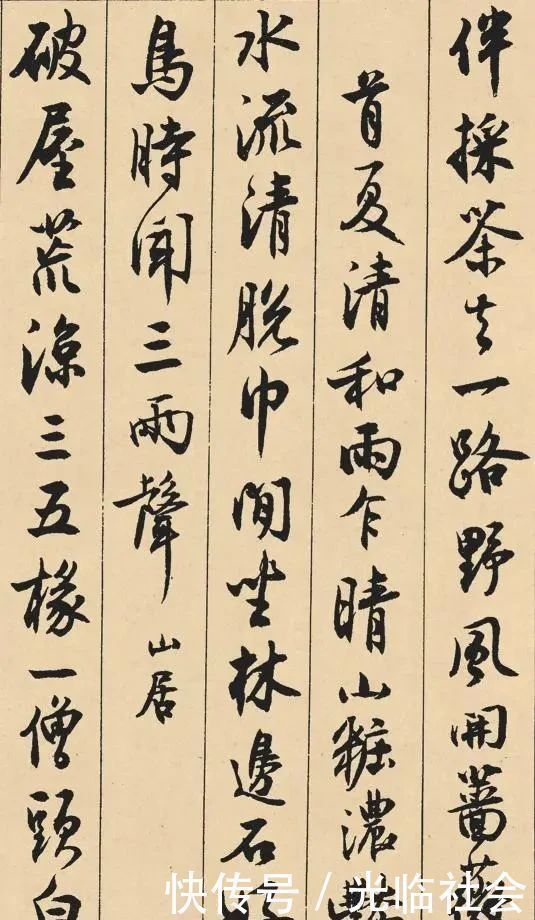 伴採茶去一路野風開薔薇
首夏清和雨乍晴山粧濃
水流清脱巾閒坐林邊石
鳥時聞三兩聲 山居
破屋荒涼三五椽一僧頭白
快传号 / 光临社会